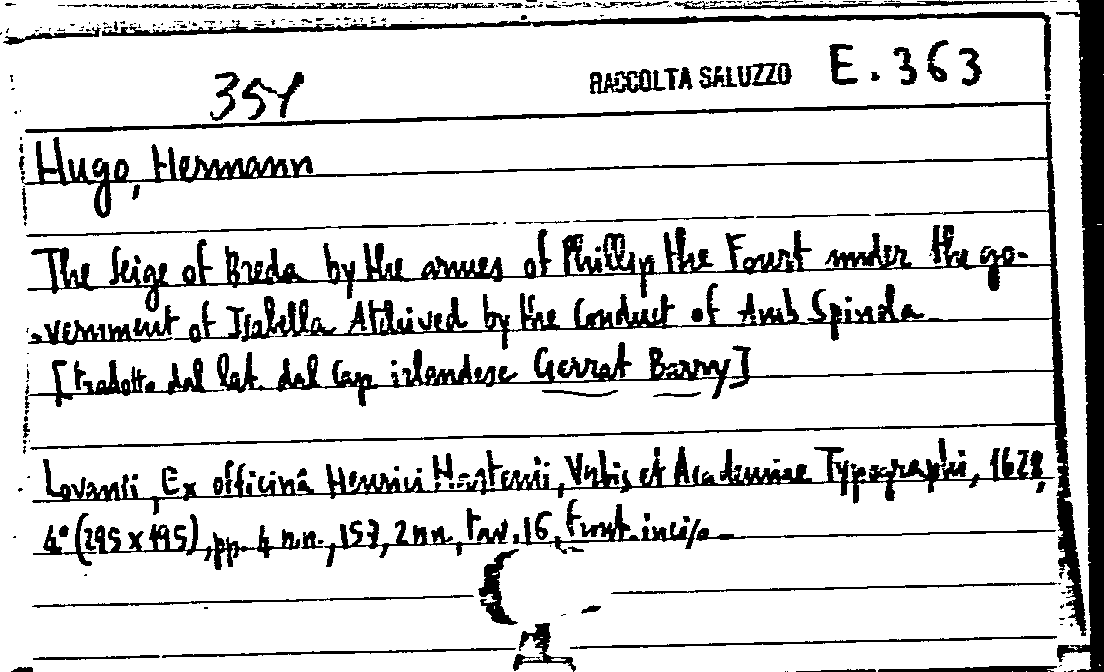 351 RACCOLTA SALUZZO E. 363
Hugo, Hermann
The seige of Breda by the armes of Phillip the Fourt under the go-
-vernment of Isabella Atchived by the conduct of Amb Spinola
[tradotto dal lat. dal Cap irlandese Gerrat Barry]
Lovanii, Ex officinâ Henrici Hastenii, Vrbis et Academiae Typographi, 1628,
4° (295 x 195), pp. 4 n.n., 157, 2 nn., tav. 16, front. inciso -